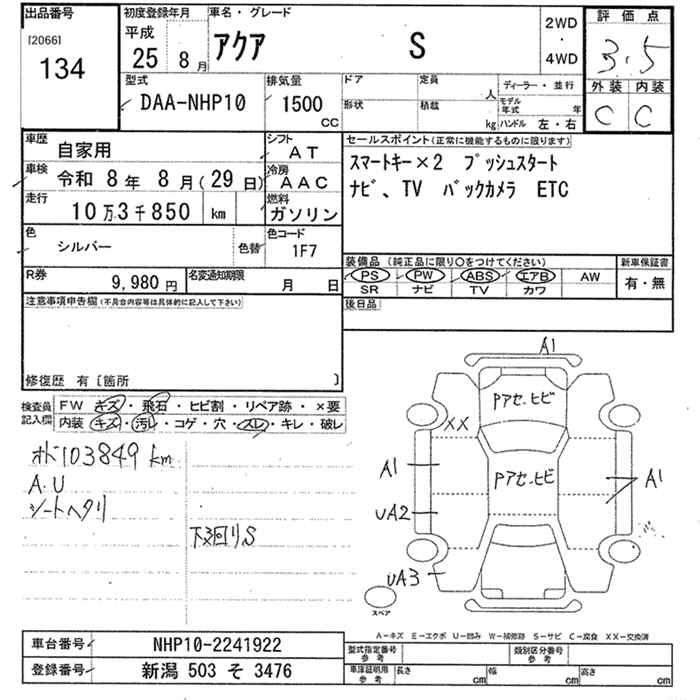 出品番号
[2066]
134
初度登録年月
平成
25 8 月
車名・グレード
アクア S
2WD
・
4WD
評価点
3.5
外装 内装
C C
型式
DAA-NHP10
排気量
1500
CC
ドア
定員
人
形状
積載
kg
ディーラー・並行
モデル年式
年
ハンドル 左・右
車歴
自家用
シフト
AT
車検
令和 8年 8月(29日)
冷房
AAC
走行
10万3千850 km
燃料
ガソリン
色
シルバー
色替
色コード
1F7
R券
9,980 円
名変通知期限
月 日
セールスポイント(正常に機能するものに限ります)
スマートキー×2 プッシュスタート
ナビ、TV バックカメラ ETC
装備品(純正品に限り○をつけてください)
PS PW ABS エアB AW
SR ナビ TV カワ
新車保証書
有・無
後日品
注意事項申告欄(不具合内容等は具体的に記入して下さい)
修復歴 有〔箇所 〕
検査員記入欄
FW キズ・飛石・ヒビ割・リペア跡・×要
内装 キズ・汚レ・コゲ・穴・スレ・キレ・破レ
オド103849km
A.U
シートヘタリ
下廻りS
A1
Pアセ.ヒビ
XX
Pアセ.ヒビ
A1
A1
UA2
UA3
スペア
A-キズ E-エクボ U-凹み W-補修跡 S-サビ C-腐食 XX-交換済
車台番号
NHP10-2241922
登録番号
新潟 503 そ 3476
型式指定番号
参考
類別区分番号
参考
車庫証明用
参考
長さ cm
幅 cm
高さ cm